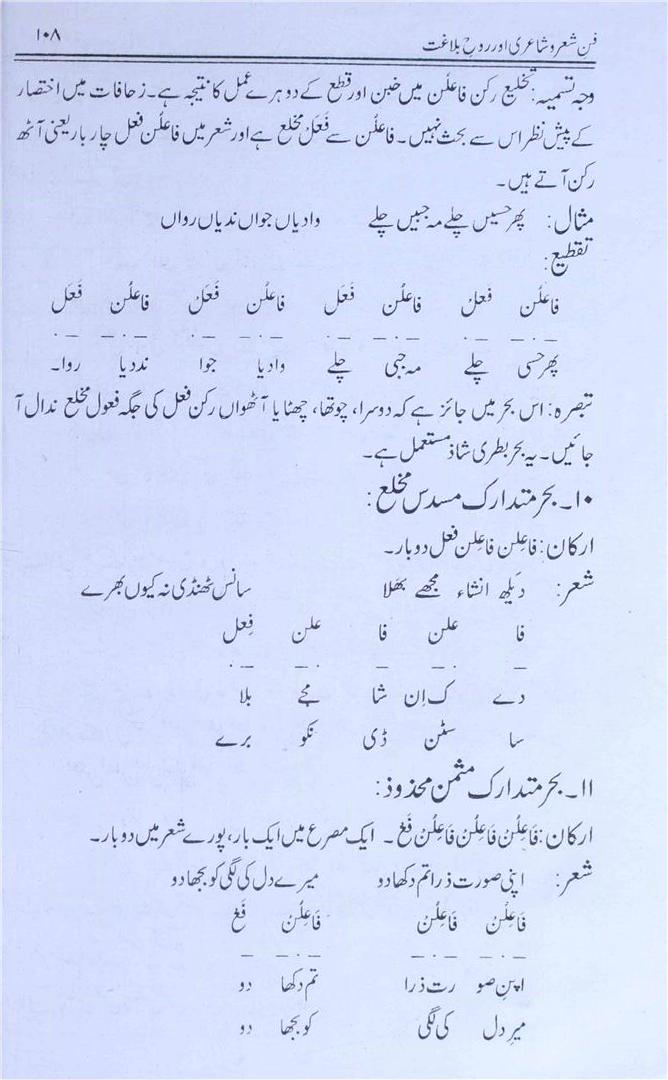 فنِ شعر و شاعری اور روحِ بلاغت
۱۰۸
وجہ تسمیہ: تخلیع رکن فاعلن میں خبن اور قطع کے دوہرے عمل کا نتیجہ ہے۔ زحافات میں اختصار
کے پیش نظر اس سے بحث نہیں۔ فاعلُن سے فَعَل مخلع ہے اور شعر میں فاعلُن فعل چار بار یعنی آٹھ
رکن آتے ہیں۔
مثال: پھر حسیں چلے مہ جبیں چلے وادیاں جواں ندیاں رواں
تقطیع:
فاعلُن فَعَلُ فاعلُن فَعَل فاعلُن فَعَلُ فاعلُن فَعَل
پھر حسی چلے مہ جبی چلے وادیا جوا نددیا روا۔
تبصرہ: اس بحر میں جائز ہے کہ دوسرا، چوتھا، چھٹا یا آٹھواں رکن فعل کی جگہ فعول مخلع ندال آ
جائیں۔ یہ بحر بطری شاذ مستعمل ہے۔
۱۰۔ بحر متدارک مسدس مخلع:
ارکان: فاعِلن فاعِلن فعل دوبار۔
شعر: دیکھ انشاء مجھے بھلا سانس ٹھنڈی نہ کیوں بھرے
فا علن فا علن فِعل
دے ک اِن شا مجے بلا
سا سٹن ڈی نکو برے
۱۱۔ بحر متدارک مثمن محذوذ:
ارکان: فَاعِلُنْ فَاعِلُنْ فَاعِلُنْ فَعْ ۔ ایک مصرع میں ایک بار، پورے شعر میں دوبار۔
شعر: اپنی صورت ذرا تم دکھا دو میرے دل کی لگی کو بجھا دو
فَاعِلُنْ فَاعِلُنْ فَاعِلُنْ فَعْ
اپنِ صو رت ذرا تم دکھا دو
میرِ دل کی لگی کو بجھا دو